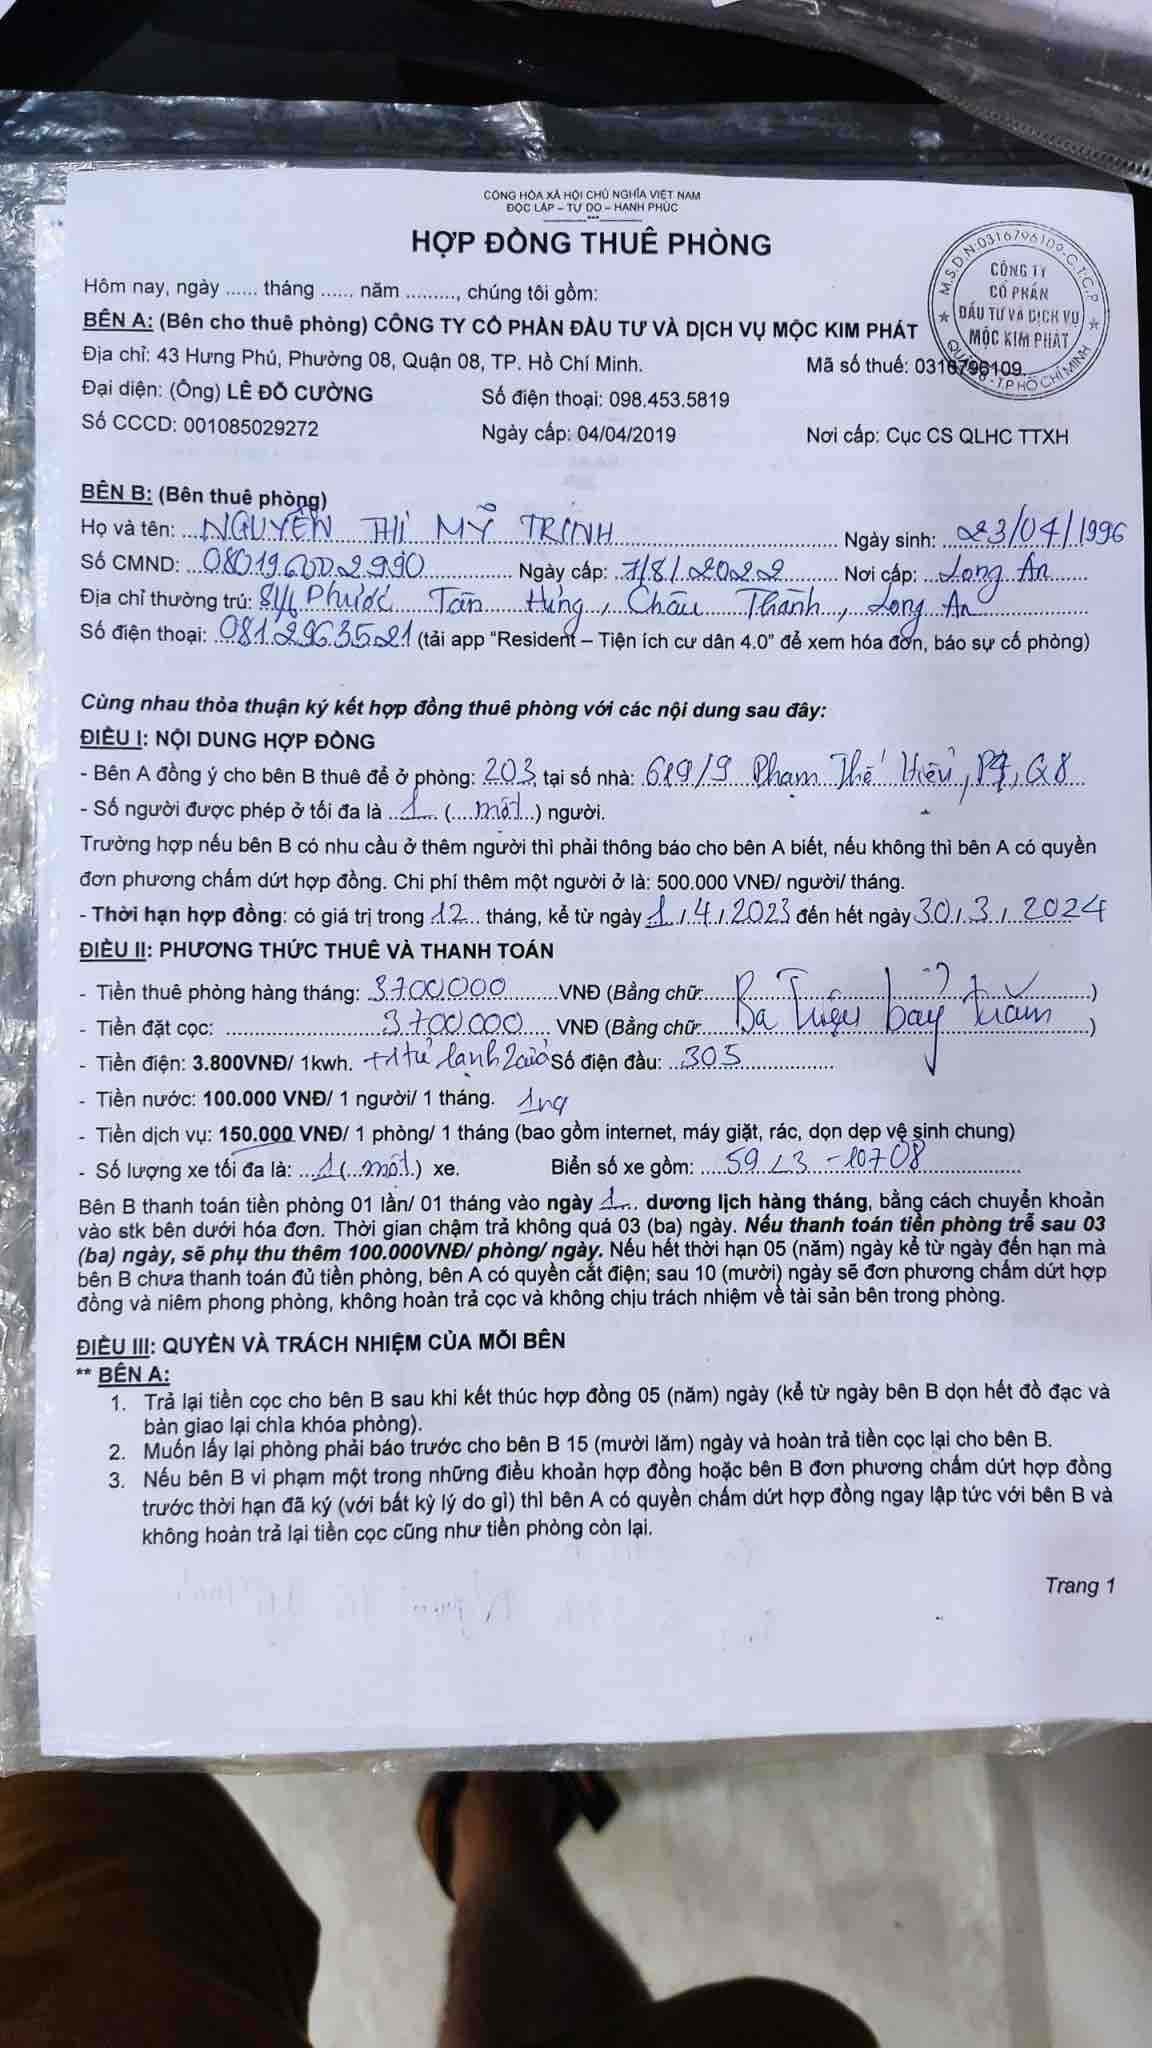 CỘNG HÒA XÃ HỘI CHỦ NGHĨA VIỆT NAM
ĐỘC LẬP – TỰ DO – HẠNH PHÚC
HỢP ĐỒNG THUÊ PHÒNG
M.S.D.N:0316796109-C.T.C.P
CÔNG TY
CỔ PHẦN
ĐẦU TƯ VÀ DỊCH VỤ
MỘC KIM PHÁT
QUẬN 8 - T.P HỒ CHÍ MINH
Hôm nay, ngày ...... tháng ...... năm ........., chúng tôi gồm:
BÊN A: (Bên cho thuê phòng) CÔNG TY CỔ PHẦN ĐẦU TƯ VÀ DỊCH VỤ MỘC KIM PHÁT
Địa chỉ: 43 Hưng Phú, Phường 08, Quận 08, TP. Hồ Chí Minh. Mã số thuế: 0316796109.
Đại diện: (Ông) LÊ ĐỖ CƯỜNG Số điện thoại: 098.453.5819
Số CCCD: 001085029272 Ngày cấp: 04/04/2019 Nơi cấp: Cục CS QLHC TTXH
BÊN B: (Bên thuê phòng)
Họ và tên: NGUYỄN THỊ MỸ TRINH Ngày sinh: 23/04/1996
Số CMND: Ngày cấp: 7/8/2022 Nơi cấp: Long An
Địa chỉ thường trú: Phước Tân Hưng, Châu Thành, Long An
Số điện thoại: 0812963521 (tải app “Resident – Tiện ích cư dân 4.0” để xem hóa đơn, báo sự cố phòng)
Cùng nhau thỏa thuận ký kết hợp đồng thuê phòng với các nội dung sau đây:
ĐIỀU I: NỘI DUNG HỢP ĐỒNG
- Bên A đồng ý cho bên B thuê để ở phòng: 203, tại số nhà: 619/9 Phạm Thế Hiển, P4, Q8
- Số người được phép ở tối đa là 1 (một) người.
Trường hợp nếu bên B có nhu cầu ở thêm người thì phải thông báo cho bên A biết, nếu không thì bên A có quyền
đơn phương chấm dứt hợp đồng. Chi phí thêm một người ở là: 500.000 VNĐ/ người/ tháng.
- Thời hạn hợp đồng: có giá trị trong 12 tháng, kể từ ngày 1/4/2023 đến hết ngày 30/3/2024
ĐIỀU II: PHƯƠNG THỨC THUÊ VÀ THANH TOÁN
- Tiền thuê phòng hàng tháng: 3700.000 VNĐ (Bằng chữ Ba Triệu bảy trăm)
- Tiền đặt cọc: 3700.000 VNĐ (Bằng chữ)
- Tiền điện: 3.800VNĐ/ 1kwh. +1 tủ lạnh Số điện đầu: 305
- Tiền nước: 100.000 VNĐ/ 1 người/ 1 tháng. 1ng
- Tiền dịch vụ: 150.000 VNĐ/ 1 phòng/ 1 tháng (bao gồm internet, máy giặt, rác, dọn dẹp vệ sinh chung)
- Số lượng xe tối đa là: 1 (một) xe. Biển số xe gồm: 59L3 -10708
Bên B thanh toán tiền phòng 01 lần/ 01 tháng vào ngày 1 dương lịch hàng tháng, bằng cách chuyển khoản
vào stk bên dưới hóa đơn. Thời gian chậm trả không quá 03 (ba) ngày. Nếu thanh toán tiền phòng trễ sau 03
(ba) ngày, sẽ phụ thu thêm 100.000VNĐ/ phòng/ ngày. Nếu hết thời hạn 05 (năm) ngày kể từ ngày đến hạn mà
bên B chưa thanh toán đủ tiền phòng, bên A có quyền cắt điện; sau 10 (mười) ngày sẽ đơn phương chấm dứt hợp
đồng và niêm phong phòng, không hoàn trả cọc và không chịu trách nhiệm về tài sản bên trong phòng.
ĐIỀU III: QUYỀN VÀ TRÁCH NHIỆM CỦA MỖI BÊN
** BÊN A:
1. Trả lại tiền cọc cho bên B sau khi kết thúc hợp đồng 05 (năm) ngày (kể từ ngày bên B dọn hết đồ đạc và
bàn giao lại chìa khóa phòng).
2. Muốn lấy lại phòng phải báo trước cho bên B 15 (mười lăm) ngày và hoàn trả tiền cọc lại cho bên B.
3. Nếu bên B vi phạm một trong những điều khoản hợp đồng hoặc bên B đơn phương chấm dứt hợp đồng
trước thời hạn đã ký (với bất kỳ lý do gì) thì bên A có quyền chấm dứt hợp đồng ngay lập tức với bên B và
không hoàn trả lại tiền cọc cũng như tiền phòng còn lại.
Trang 1